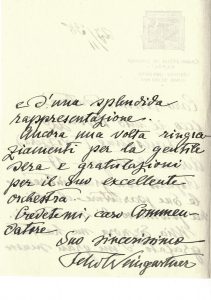 e d'una splendida
rappresentazione.
Ancora una volta ringra
ziamenti per la gentile
sera e gratulazioni
per il Suo excellente
orchestra
Credetemi, caro Commen
datore
Suo sincerissimo
Felix Weingartner